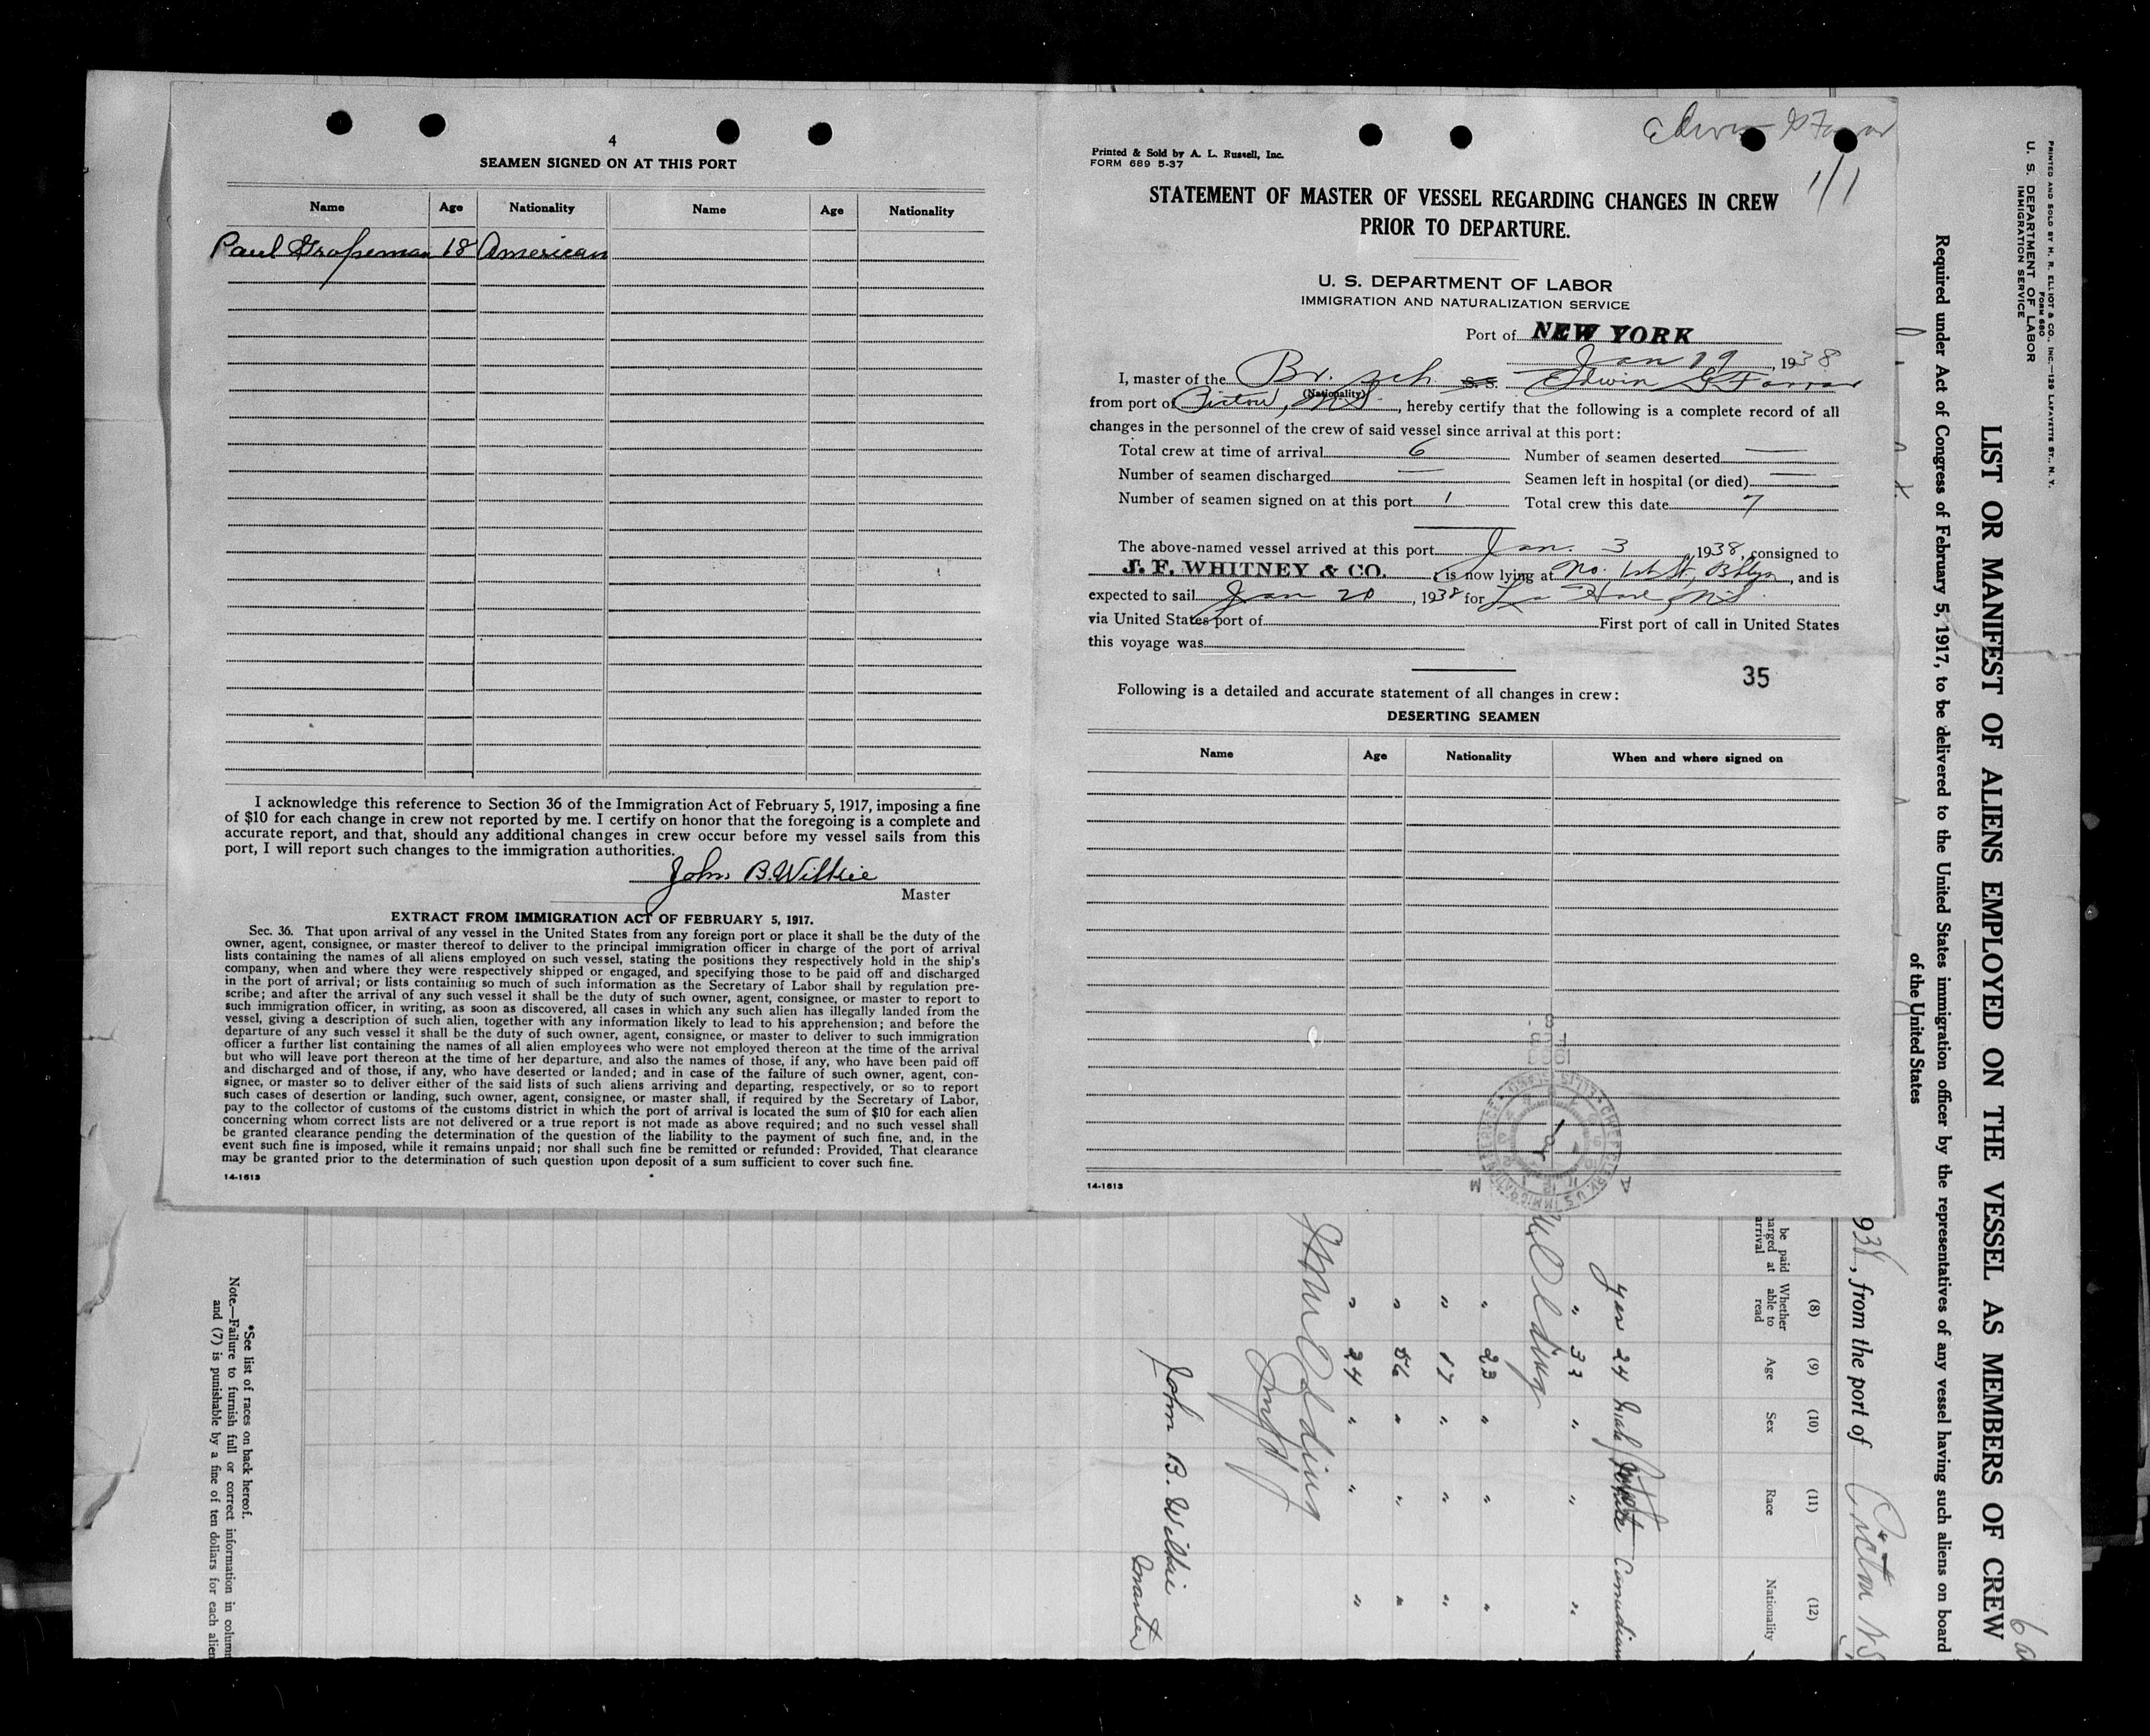 4
SEAMEN SIGNED ON AT THIS PORT
Name Age Nationality Name Age Nationality
Paul Grosseman 18 American
I acknowledge this reference to Section 36 of the Immigration Act of February 5, 1917, imposing a fine
of $10 for each change in crew not reported by me. I certify on honor that the foregoing is a complete and
accurate report, and that, should any additional changes in crew occur before my vessel sails from this
port, I will report such changes to the immigration authorities.
John B. Wilkie
Master
EXTRACT FROM IMMIGRATION ACT OF FEBRUARY 5, 1917.
Sec. 36. That upon arrival of any vessel in the United States from any foreign port or place it shall be the duty of the
owner, agent, consignee, or master thereof to deliver to the principal immigration officer in charge of the port of arrival
lists containing the names of all aliens employed on such vessel, stating the positions they respectively hold in the ship's
company, when and where they were respectively shipped or engaged, and specifying those to be paid off and discharged
in the port of arrival; or lists containing so much of such information as the Secretary of Labor shall by regulation pre-
scribe; and after the arrival of any such vessel it shall be the duty of such owner, agent, consignee, or master to report to
such immigration officer, in writing, as soon as discovered, all cases in which any such alien has illegally landed from the
vessel, giving a description of such alien, together with any information likely to lead to his apprehension; and before the
departure of any such vessel it shall be the duty of such owner, agent, consignee, or master to deliver to such immigration
officer a further list containing the names of all alien employees who were not employed thereon at the time of the arrival
but who will leave port thereon at the time of her departure, and also the names of those, if any, who have been paid off
and discharged and of those, if any, who have deserted or landed; and in case of the failure of such owner, agent, con-
signee, or master so to deliver either of the said lists of such aliens arriving and departing, respectively, or so to report
such cases of desertion or landing, such owner, agent, consignee, or master shall, if required by the Secretary of Labor,
pay to the collector of customs of the customs district in which the port of arrival is located the sum of $10 for each alien
concerning whom correct lists are not delivered or a true report is not made as above required; and no such vessel shall
be granted clearance pending the determination of the question of the liability to the payment of such fine, and, in the
event such fine is imposed, while it remains unpaid; nor shall such fine be remitted or refunded: Provided, That clearance
may be granted prior to the determination of such question upon deposit of a sum sufficient to cover such fine.
14-1613
Edwin G Farrar
1/1
Printed & Sold by A. L. Russell, Inc.
FORM 689 5-37
STATEMENT OF MASTER OF VESSEL REGARDING CHANGES IN CREW
PRIOR TO DEPARTURE.
U. S. DEPARTMENT OF LABOR
IMMIGRATION AND NATURALIZATION SERVICE
Port of NEW YORK
Jan 19, 1938
I, master of the Br. sch. S. S. Edwin G Farrar
(Nationality)
from port of Pictou, NS, hereby certify that the following is a complete record of all
changes in the personnel of the crew of said vessel since arrival at this port:
Total crew at time of arrival 6 Number of seamen deserted —
Number of seamen discharged — Seamen left in hospital (or died) —
Number of seamen signed on at this port 1 Total crew this date 7
The above-named vessel arrived at this port Jan. 3, 1938, consigned to
J. F. WHITNEY & CO.; is now lying at No. 1st St, Bklyn, and is
expected to sail Jan 20, 1938 for La Have, NS
via United States port of First port of call in United States
this voyage was
35
Following is a detailed and accurate statement of all changes in crew:
DESERTING SEAMEN
Name Age Nationality When and where signed on
14-1613
PRINTED AND SOLD BY H. R. ELLIOT & CO., INC.—129 LAFAYETTE ST., N. Y.
FORM 680
U. S. DEPARTMENT OF LABOR
IMMIGRATION SERVICE
LIST OR MANIFEST OF ALIENS EMPLOYED ON THE VESSEL AS MEMBERS OF CREW
Required under Act of Congress of February 5, 1917, to be delivered to the United States immigration officer by the representatives of any vessel having such aliens on board
of the United States
938, from the port of Pictou NS
(8) (9) (10) (11) (12)
be paid
arged at
arrival
Whether
able to
read
Age Sex Race Nationality
yes 24 Male White Canadian
" 33 " " "
" 23 " " "
" 17 " " "
" 56 " " "
" 24 " " "
John B. Wilkie
Master
*See list of races on back hereof.
Note.—Failure to furnish full or correct information in colum
and (7) is punishable by a fine of ten dollars for each alien